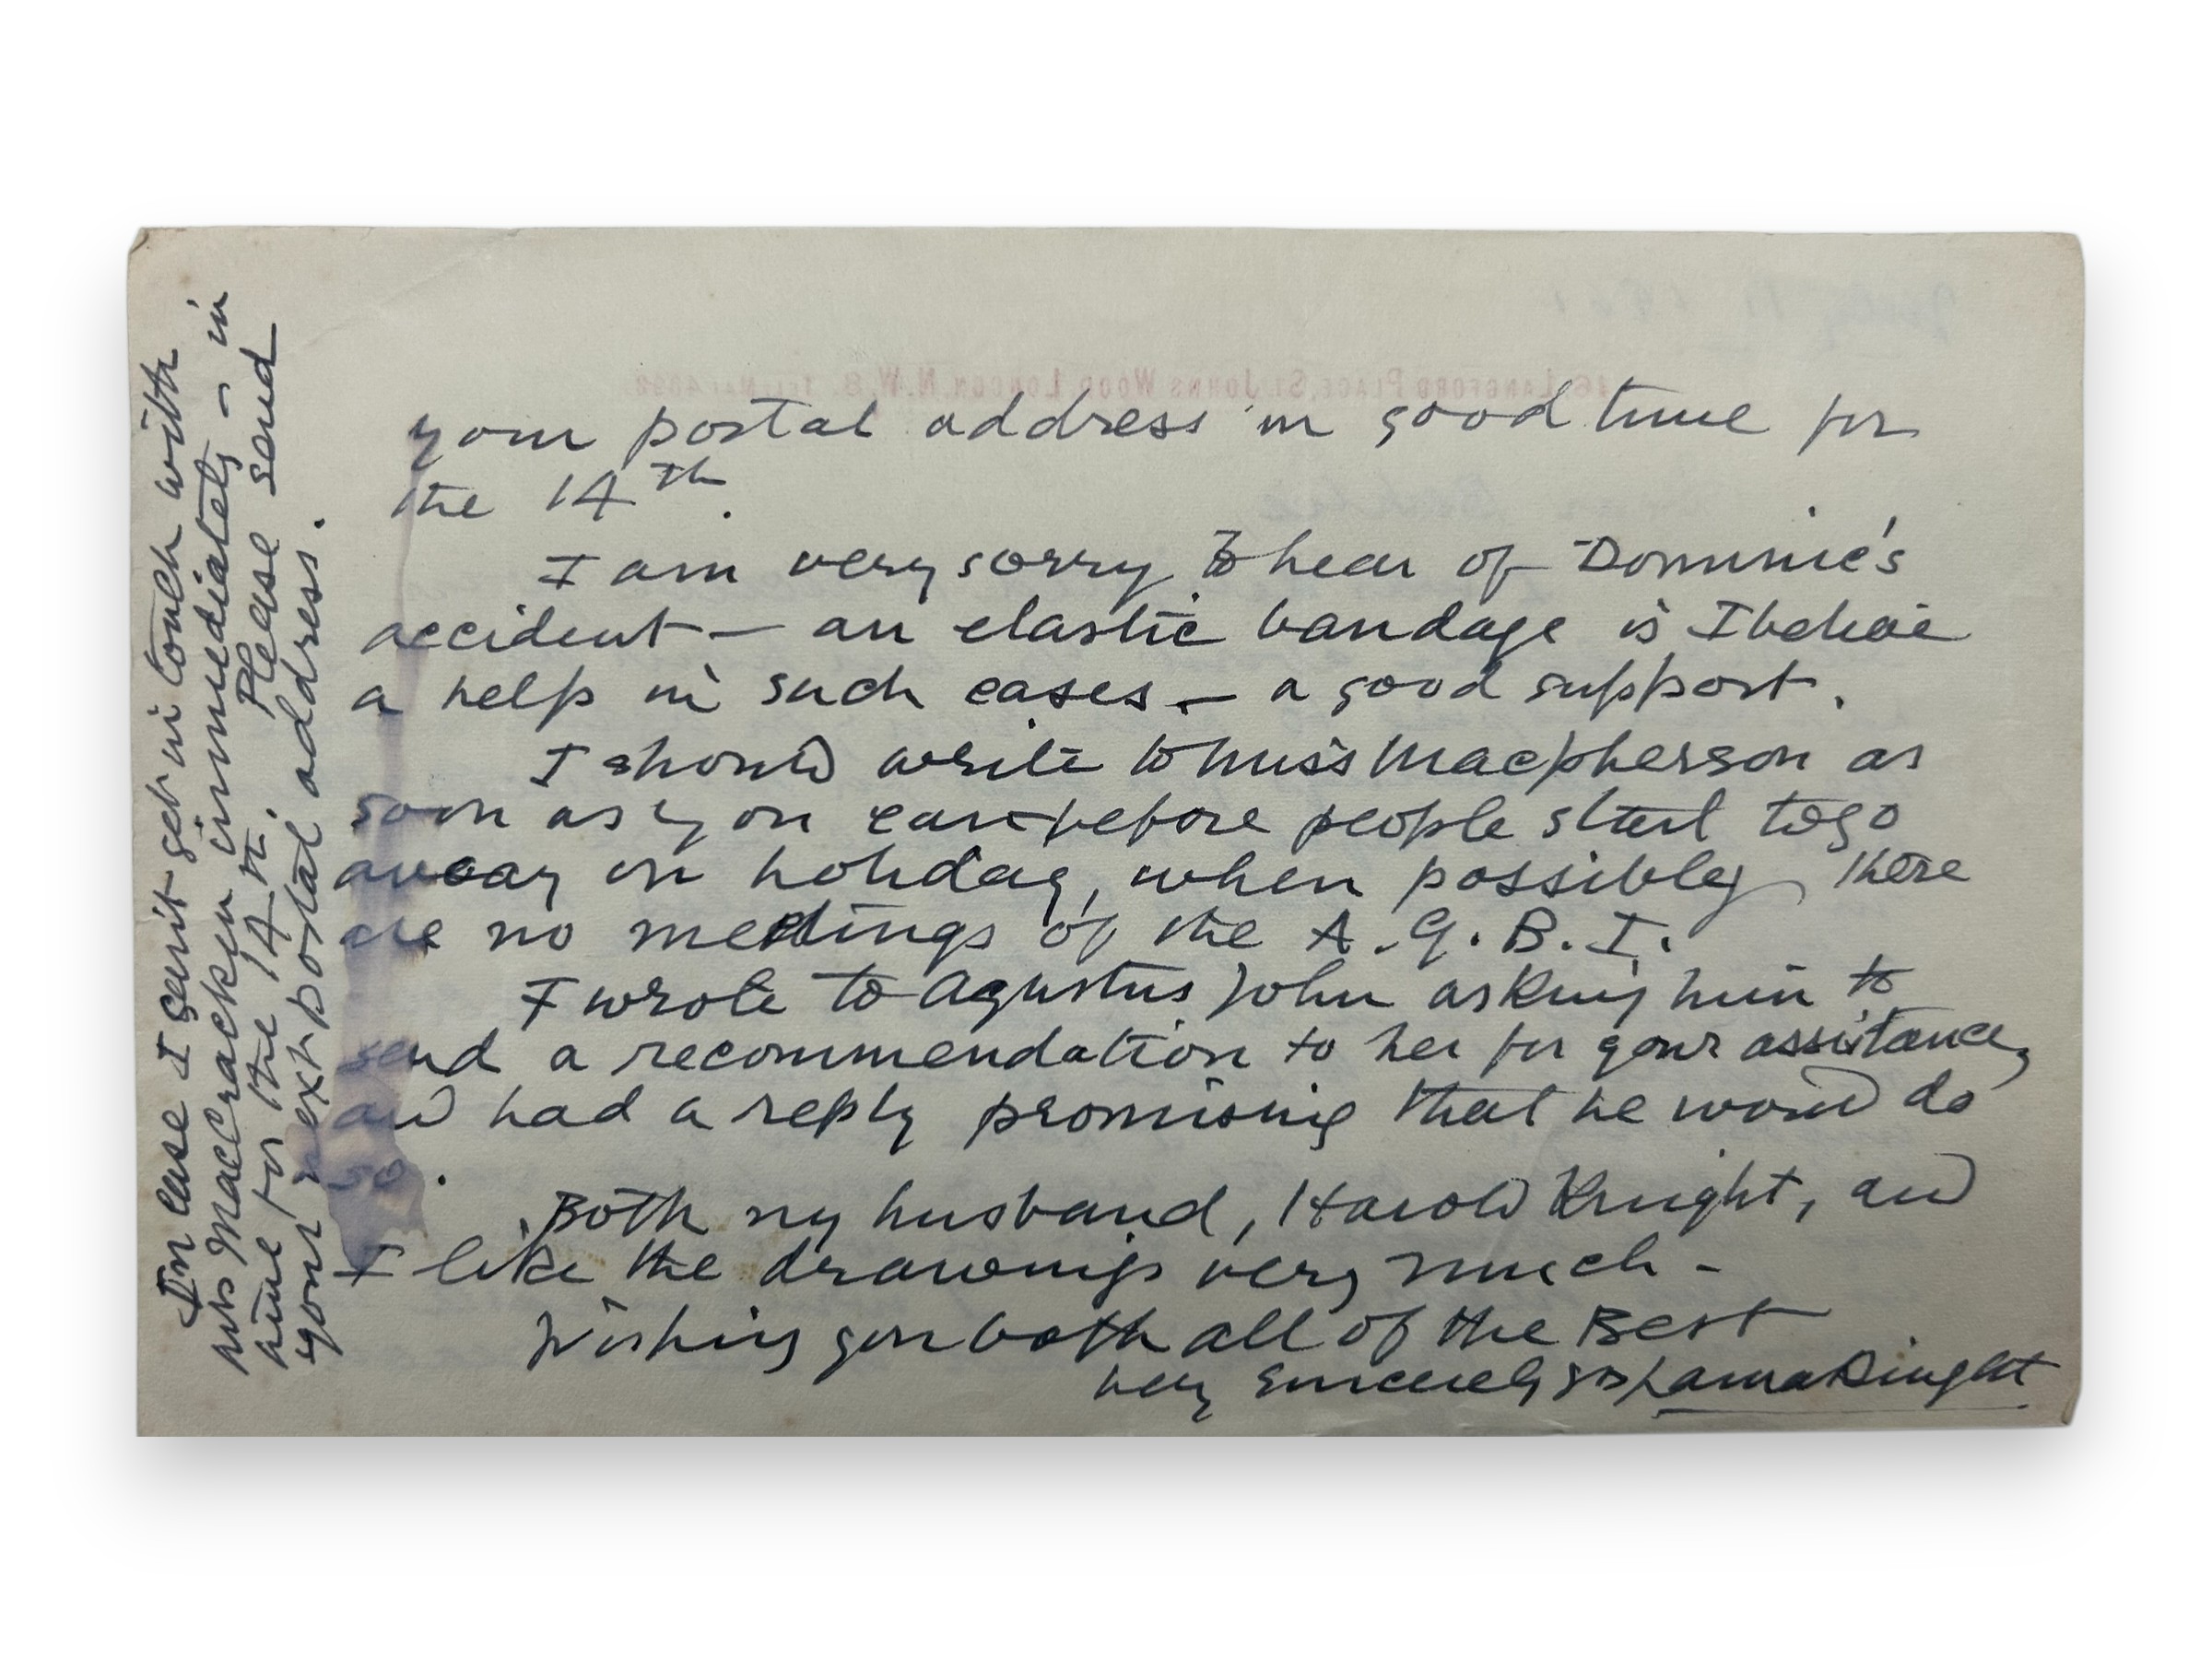 your postal address in good time for
the 14th.
I am very sorry to hear of Dominie's
accident — an elastic bandage is I believe
a help in such cases — a good support.
I should write to Miss Macpherson as
soon as you can before people start to go
away on holiday, when possibly there
are no meetings of the A.G.B.I.
I wrote to Agustus John asking him to
send a recommendation to her for your assistance,
and had a reply promising that he would do
so.
Both my husband, Harold Knight, and
I like the drawings very much -
Wishing you both all of the Best
Very sincerely Laura Knight
In case I can't get in touch with
Mrs Maccracken immediately - in
time for the 14th. Please send
your next postal address.
16 Langford Place, St Johns Wood London N.W. 8. Tel. Mai